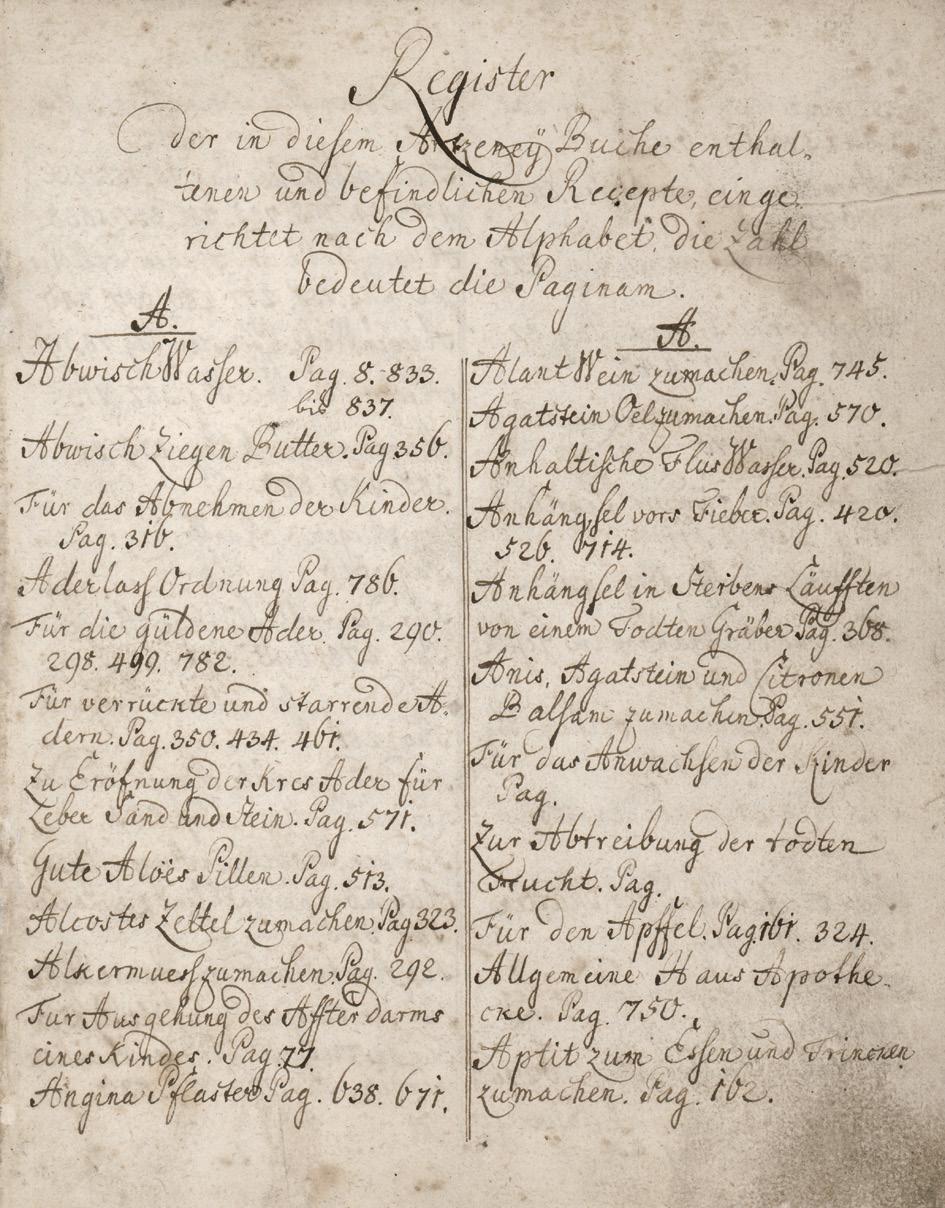 Register
der in diesem Artzeneÿ Buche enthal-
tenen und befindlichen Recepte, einge-
richtet nach dem Alphabet, die Zahl
bedeutet die Paginam.
A.
Abwisch Wasser. Pag. 8. 833.
bis 837.
Abwisch Ziegen Butter. Pag 356.
Für das Abnehmen der Kinder.
Pag. 316.
Aderlass Ordnung Pag. 786.
Für die güldene Ader. Pag. 290.
298. 499. 782.
Für verrückte und starrende A-
dern. Pag. 350. 434. 461.
Zu Eröfnung der Kres Ader für
Leber Sand und Stein. Pag. 571.
Gute Aloës Pillen. Pag. 513.
Alcostes Zettel zumachen. Pag 323.
Alkermuess zumachen. Pag. 292.
Fur Ausgehung des Affter darms
eines Kindes. Pag. 77.
Angina Pflaster Pag. 638. 671.
A.
Alant Wein zumachen. Pag. 745.
Agatstein Oel zumachen. Pag. 570.
Anhaltische Flus Wasser. Pag. 520.
Anhängsel vors Fieber. Pag. 420.
526. 714.
Anhängsel in Sterbens Läufften
von einem Todten Gräber Pag. 368.
Anis, Agatstein und Citronen
Balsam zumachen. Pag. 551.
Für das Anwachsen der Kinder
Pag.
Zur Abtreibung der todten
Frucht. Pag.
Für den Apffel. Pag. 161. 324.
Allgemeine Haus Apothe-
cke. Pag. 750.
Aptit zum Essen und Trincken
zumachen. Pag. 162.